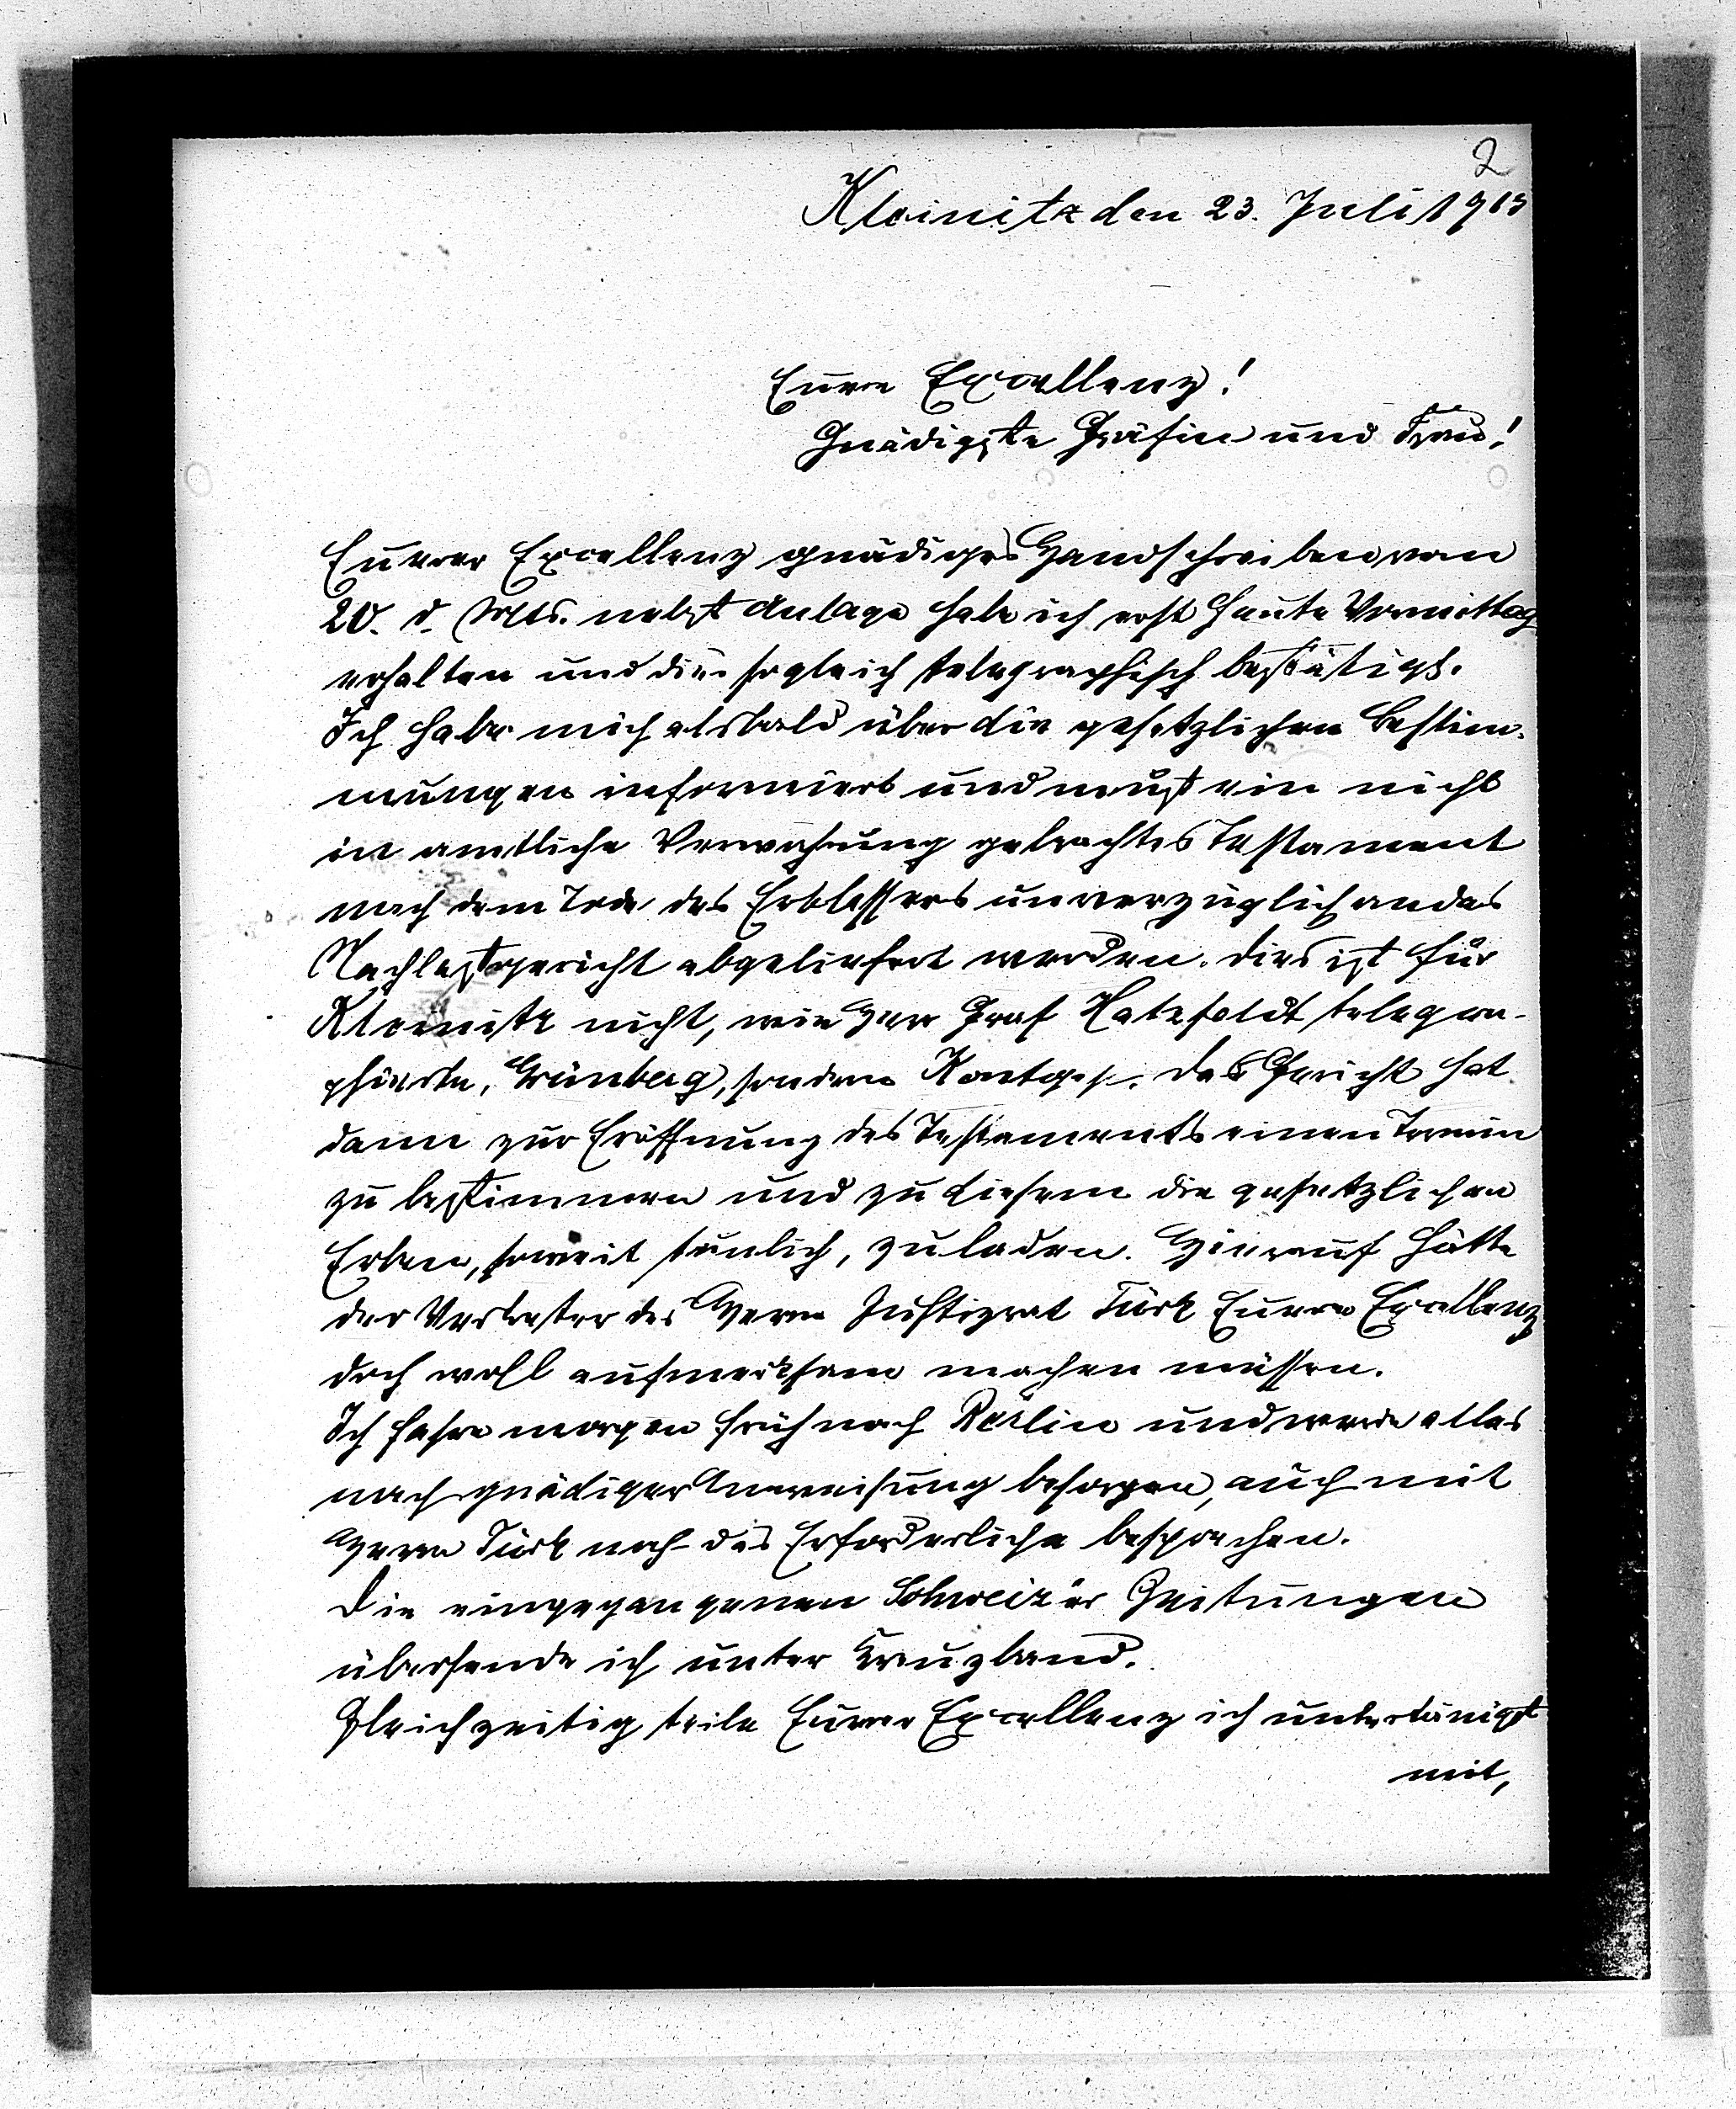 2
Kleinitz den 23. Juli 1913
Eure Excellenz!
Gnädigste Gräfin und Frau!
Euerer Excellenz gnädiges Handschreiben vom
20. d. Mts. nebst Anlage habe ich erst heute Vormittag
erhalten und dies sogleich telegraphisch bestätigt.
Ich habe mich alsbald über die gesetzlichen Bestim-
mungen informiert und muß ein nicht
in amtliche Verwahrung gebrachtes Testament
nach dem Tode des Erblassers unverzüglich an das
Nachlaßgericht abgeliefert werden. Dies ist für
Kleinitz nicht, wie Herr Graf Hatzfeldt telegra-
phierte, Grünberg, sondern Kontopp. Das Gericht hat
dann zur Eröffnung des Testaments einen Termin
zu bestimmen und zu diesem die gesetzlichen
Erben, soweit tunlich, zu laden. Hierauf hätte
der Vertreter des Herrn Justizrat Türk Euere Excellenz
doch wohl aufmerksam machen müssen.
Ich fahre morgen früh nach Berlin und werde alles
nach gnädiger Anweisung besorgen, auch mit
Herrn Türk noch das Erforderliche besprechen.
Die eingegangenen Schweizer Zeitungen
übersende ich unter Kreuzband.
Gleichzeitig teile Eurer Excellenz ich untertänigst
mit,